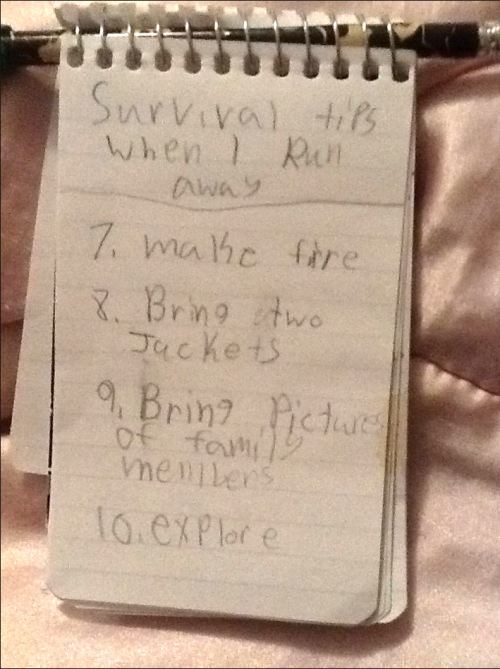 Survival tips
when I Run
away
7. make fire
8. Bring two
Jackets
9. Bring Pictures
of family
members
10. explore